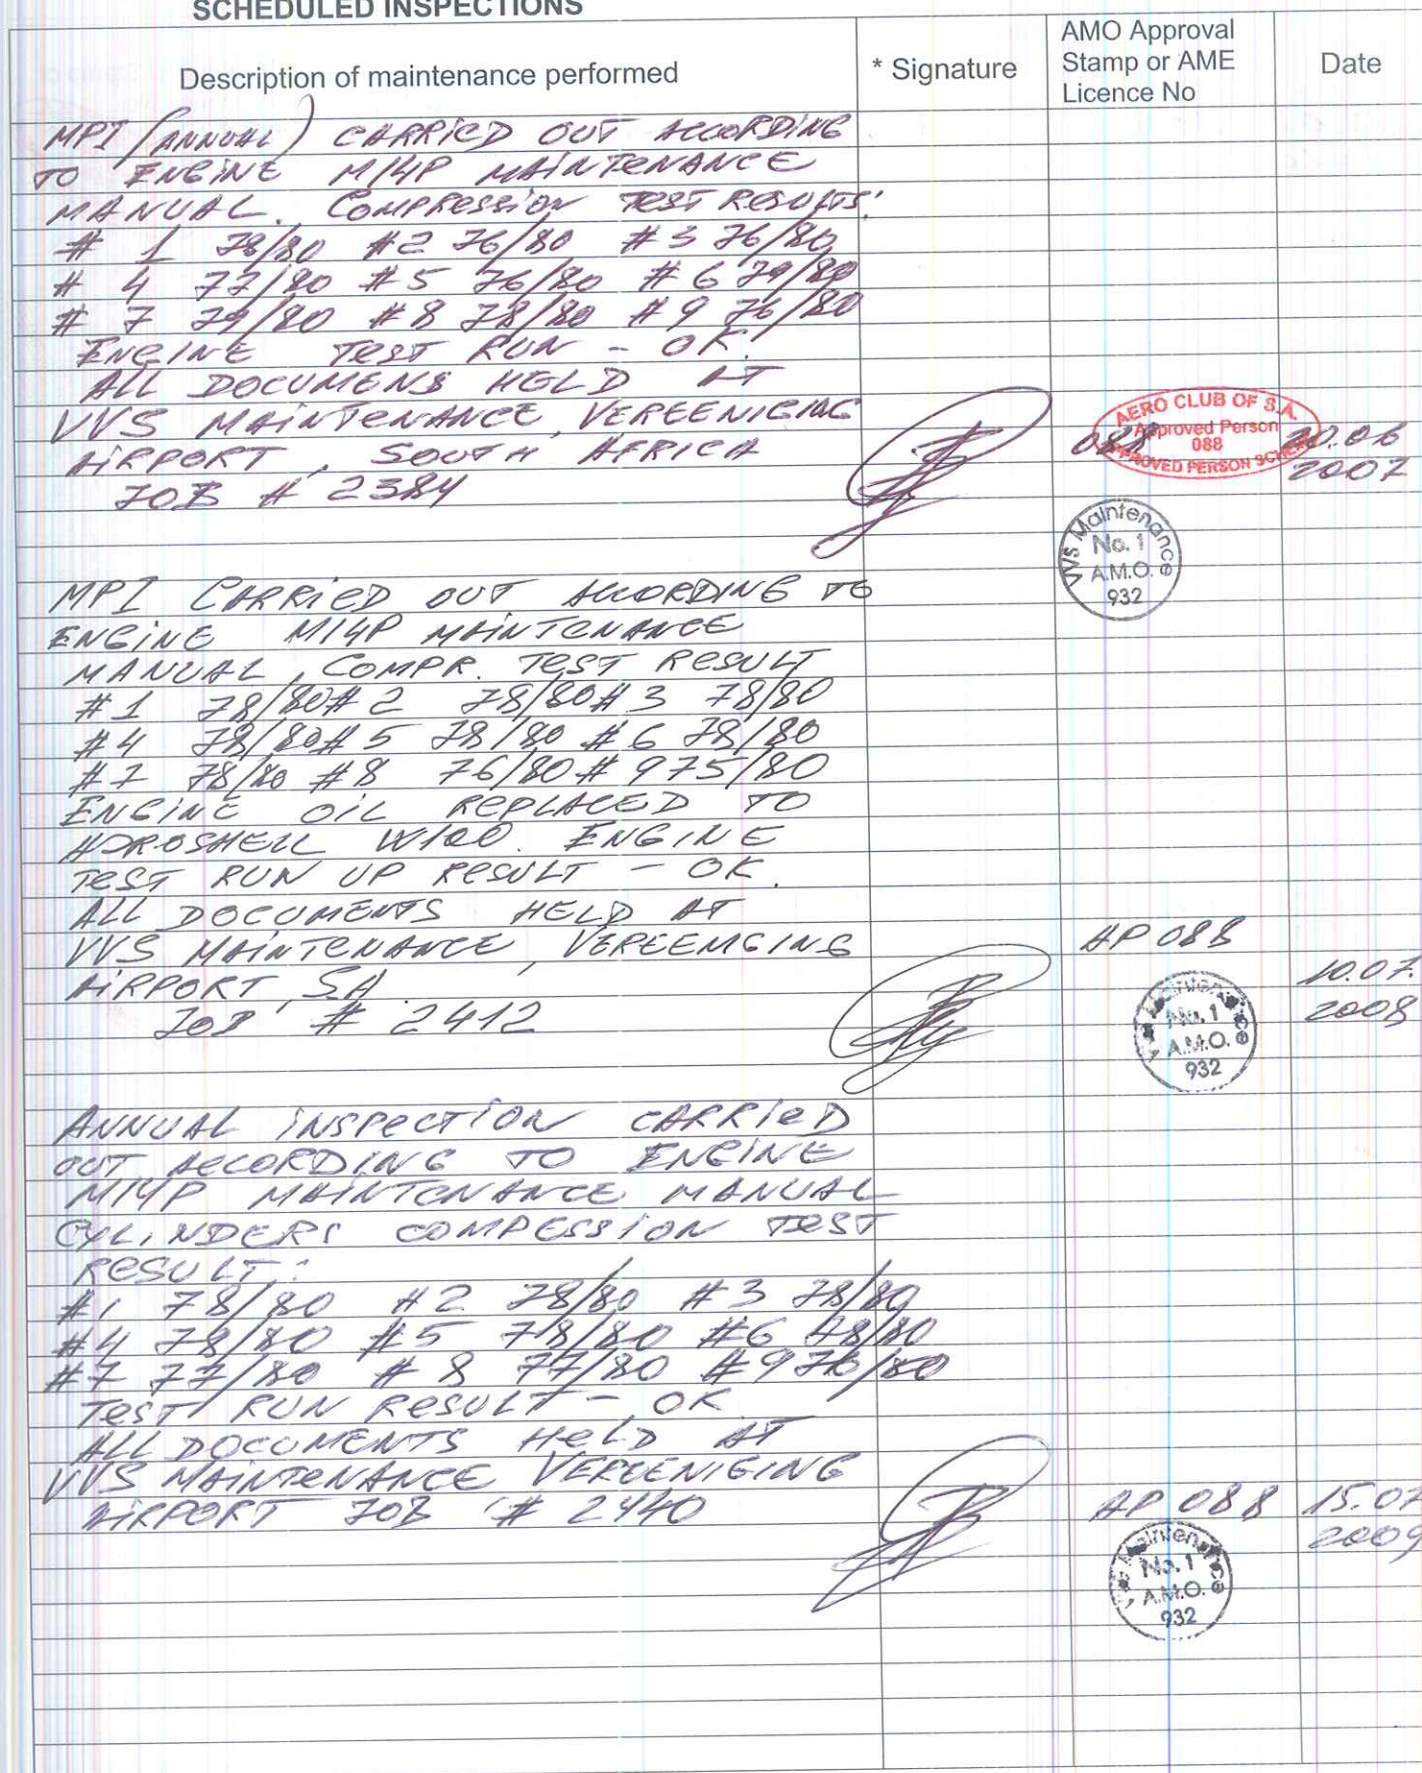 SCHEDULED INSPECTIONS
Description of maintenance performed
* Signature
AMO Approval
Stamp or AME
Licence No
Date
MPI (ANNUAL) CARRIED OUT ACCORDING
TO ENGINE M14P MAINTENANCE
MANUAL. COMPRESSION TEST RESULTS:
# 1 78/80 #2 76/80 #3 76/80
# 4 77/80 #5 76/80 #6 79/80
# 7 79/80 #8 78/80 #9 76/80
ENGINE TEST RUN - OK.
ALL DOCUMENS HELD AT
VVS MAINTENANCE, VEREENIGING
AIRPORT, SOUTH AFRICA
JOB # 2384
088
AERO CLUB OF S.A.
Approved Person
088
APPROVED PERSON SCHEME
.06
2007
VVS Maintenance
No. 1
A.M.O.
932
MPI CARRIED OUT ACCORDING TO
ENGINE M14P MAINTENANCE
MANUAL, COMPR. TEST RESULT
#1 78/80 #2 78/80 #3 78/80
#4 78/80 #5 78/80 #6 78/80
#7 78/80 #8 76/80 #9 75/80
ENGINE OIL REPLACED TO
AEROSHELL W100. ENGINE
TEST RUN UP RESULT - OK.
ALL DOCUMENTS HELD AT
VVS MAINTENANCE, VEREENIGING
AIRPORT, SA.
JOB # 2412
AP 088
10.07.
2008
VVS Maintenance
No. 1
A.M.O.
932
ANNUAL INSPECTION CARRIED
OUT ACCORDING TO ENGINE
M14P MAINTENANCE MANUAL
CYLINDERS COMPESSION TEST
RESULT:
#1 78/80 #2 78/80 #3 78/80
#4 78/80 #5 78/80 #6 78/80
#7 77/80 #8 77/80 #9 76/80
TEST RUN RESULT - OK
ALL DOCUMENTS HELD AT
VVS MAINTENANCE VEREENIGING
AIRPORT JOB # 2440
AP 088
15.07
2009
VVS Maintenance
No. 1
A.M.O.
932